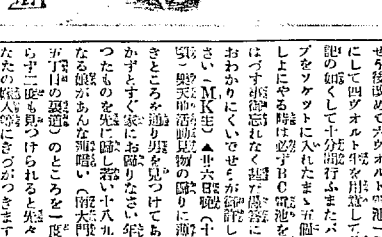 せう後改めて六ヴオルト電池一
にして四ヴオルト半を用意して
記の如くして十分間行ふまたバ
ブをソケツトに入れたまゝ五個
しよにやる時は必ずBC電池を
はづす事御忘れなく甚だ愚答に
おわかりにくいでせうが御許し
さい(MK生)▲廿六日晩(十
頃)樂天地活動見物の歸りに薄
きところを通り男を見つけてあ
かずとすぐ家にお歸りなさい年
つたものを先に歸し若い十八九
なる娘があんな薄暗い(南大門
五丁目の裏道)のところを一度
らず二度も見つけられると先々
なたの 人等にきづがつきます